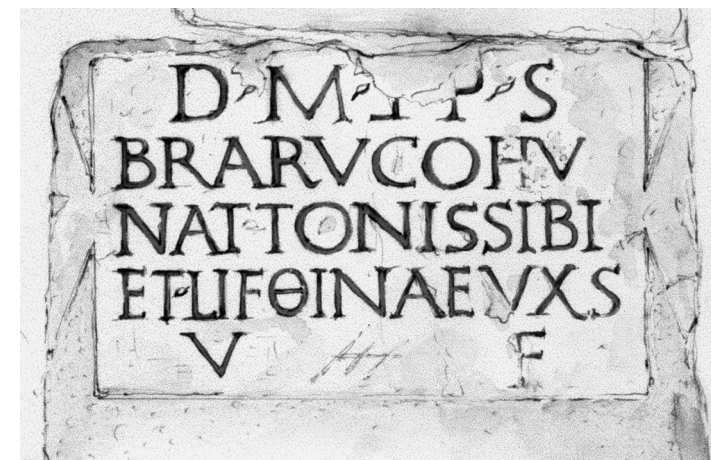 D·M· P·S
BRARVCOFV
NATTONISSIBI
ET·LIFΘINAEVXS
V F